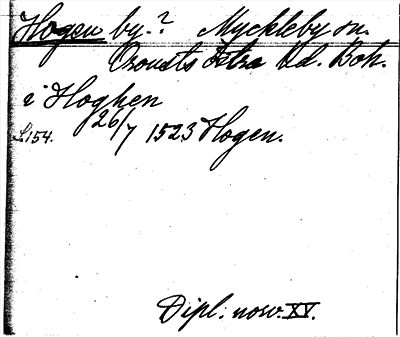 Hogen by.? Myckleby sn.
Orousts Västra hd. Boh.
i Hoghen
S.154. 26/7 1523 Hogen.
Dipl: norv. XV.